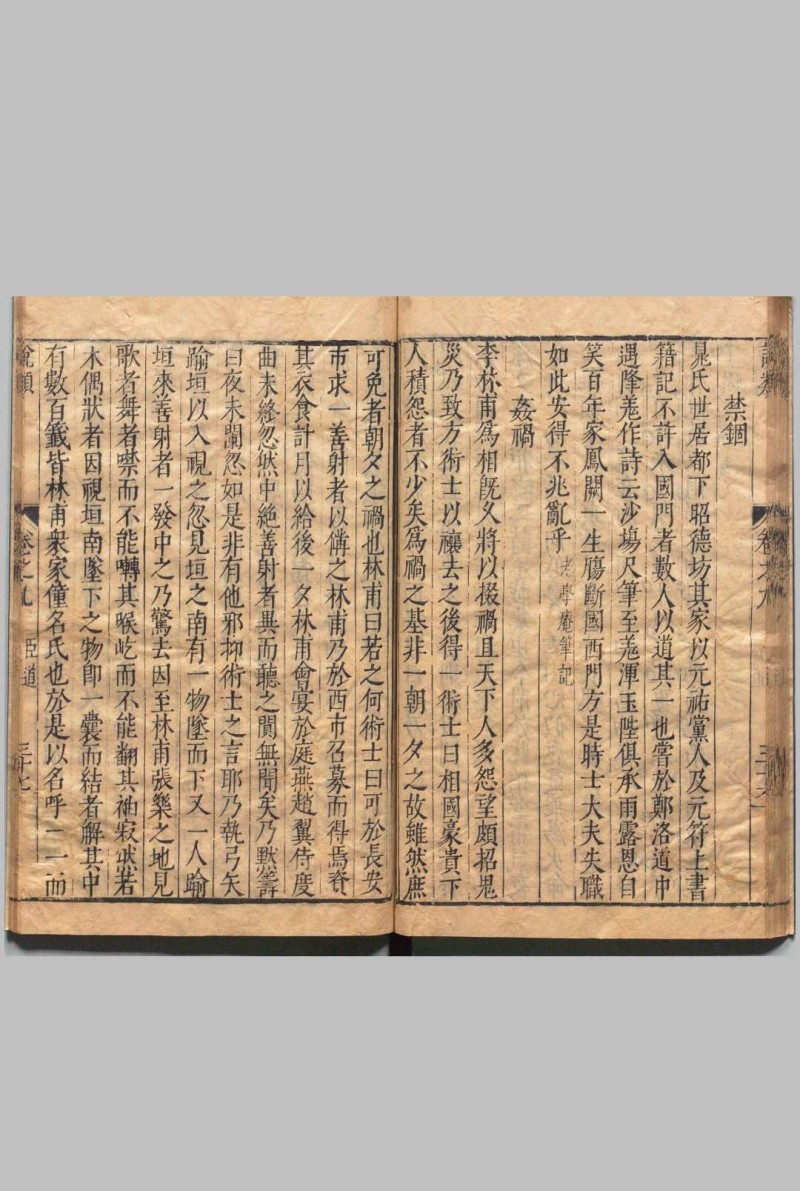 禁錮
晁氏世居都下昭德坊其家以元祐黨人及元符上書
籍記不許入國門者數人以道其一也嘗於鄭洛道中
遇降羗作詩云沙塲尺箠至羗渾玉陛俱承雨露恩自
笑百年家鳳闕一生腸斷國西門方是時士大夫失職
如此安得不兆亂乎 老學庵筆記
姦禍
李林甫爲相旣久將以掇禍且天下人多怨望頗招鬼
災乃致方術士以禳去之後得一術士曰相國豪貴下
人積怨者不少矣爲禍之基非一朝一夕之故雖然庶
可免者朝夕之禍也林甫曰若之何術士曰可於長安
市求一善射者以俻之林甫乃於西市召募而得焉
其衣食計月以給後一夕林甫會宴於庭燕趙翼侍度
曲未終忽然中絶善射者異而聽之間無聞矣乃默籌
曰夜未闌忽如是非有他邪抑術士之言耶乃執弓矢
踰垣以入視之忽見垣之南有一物墜而下又一人踰
垣來善射者一發中之乃驚去因至林甫張樂之地見
歌者舞者噤而不能囀其喉屹而不能翻其袖寂然若
木偶狀者因視垣南墜下之物即一囊而結者解其中
有數百籖皆林甫衆家僮名氏也於是以名呼一一而
說類
卷之九
臣道
三十七